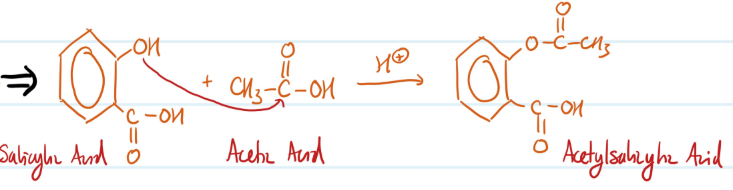 ⇒ OH + CH₃-C-OH H⊕ O-C-CH₃
O O
C-OH C-OH
O O
Salicylic Acid Acetic Acid Acetylsalicylic Acid